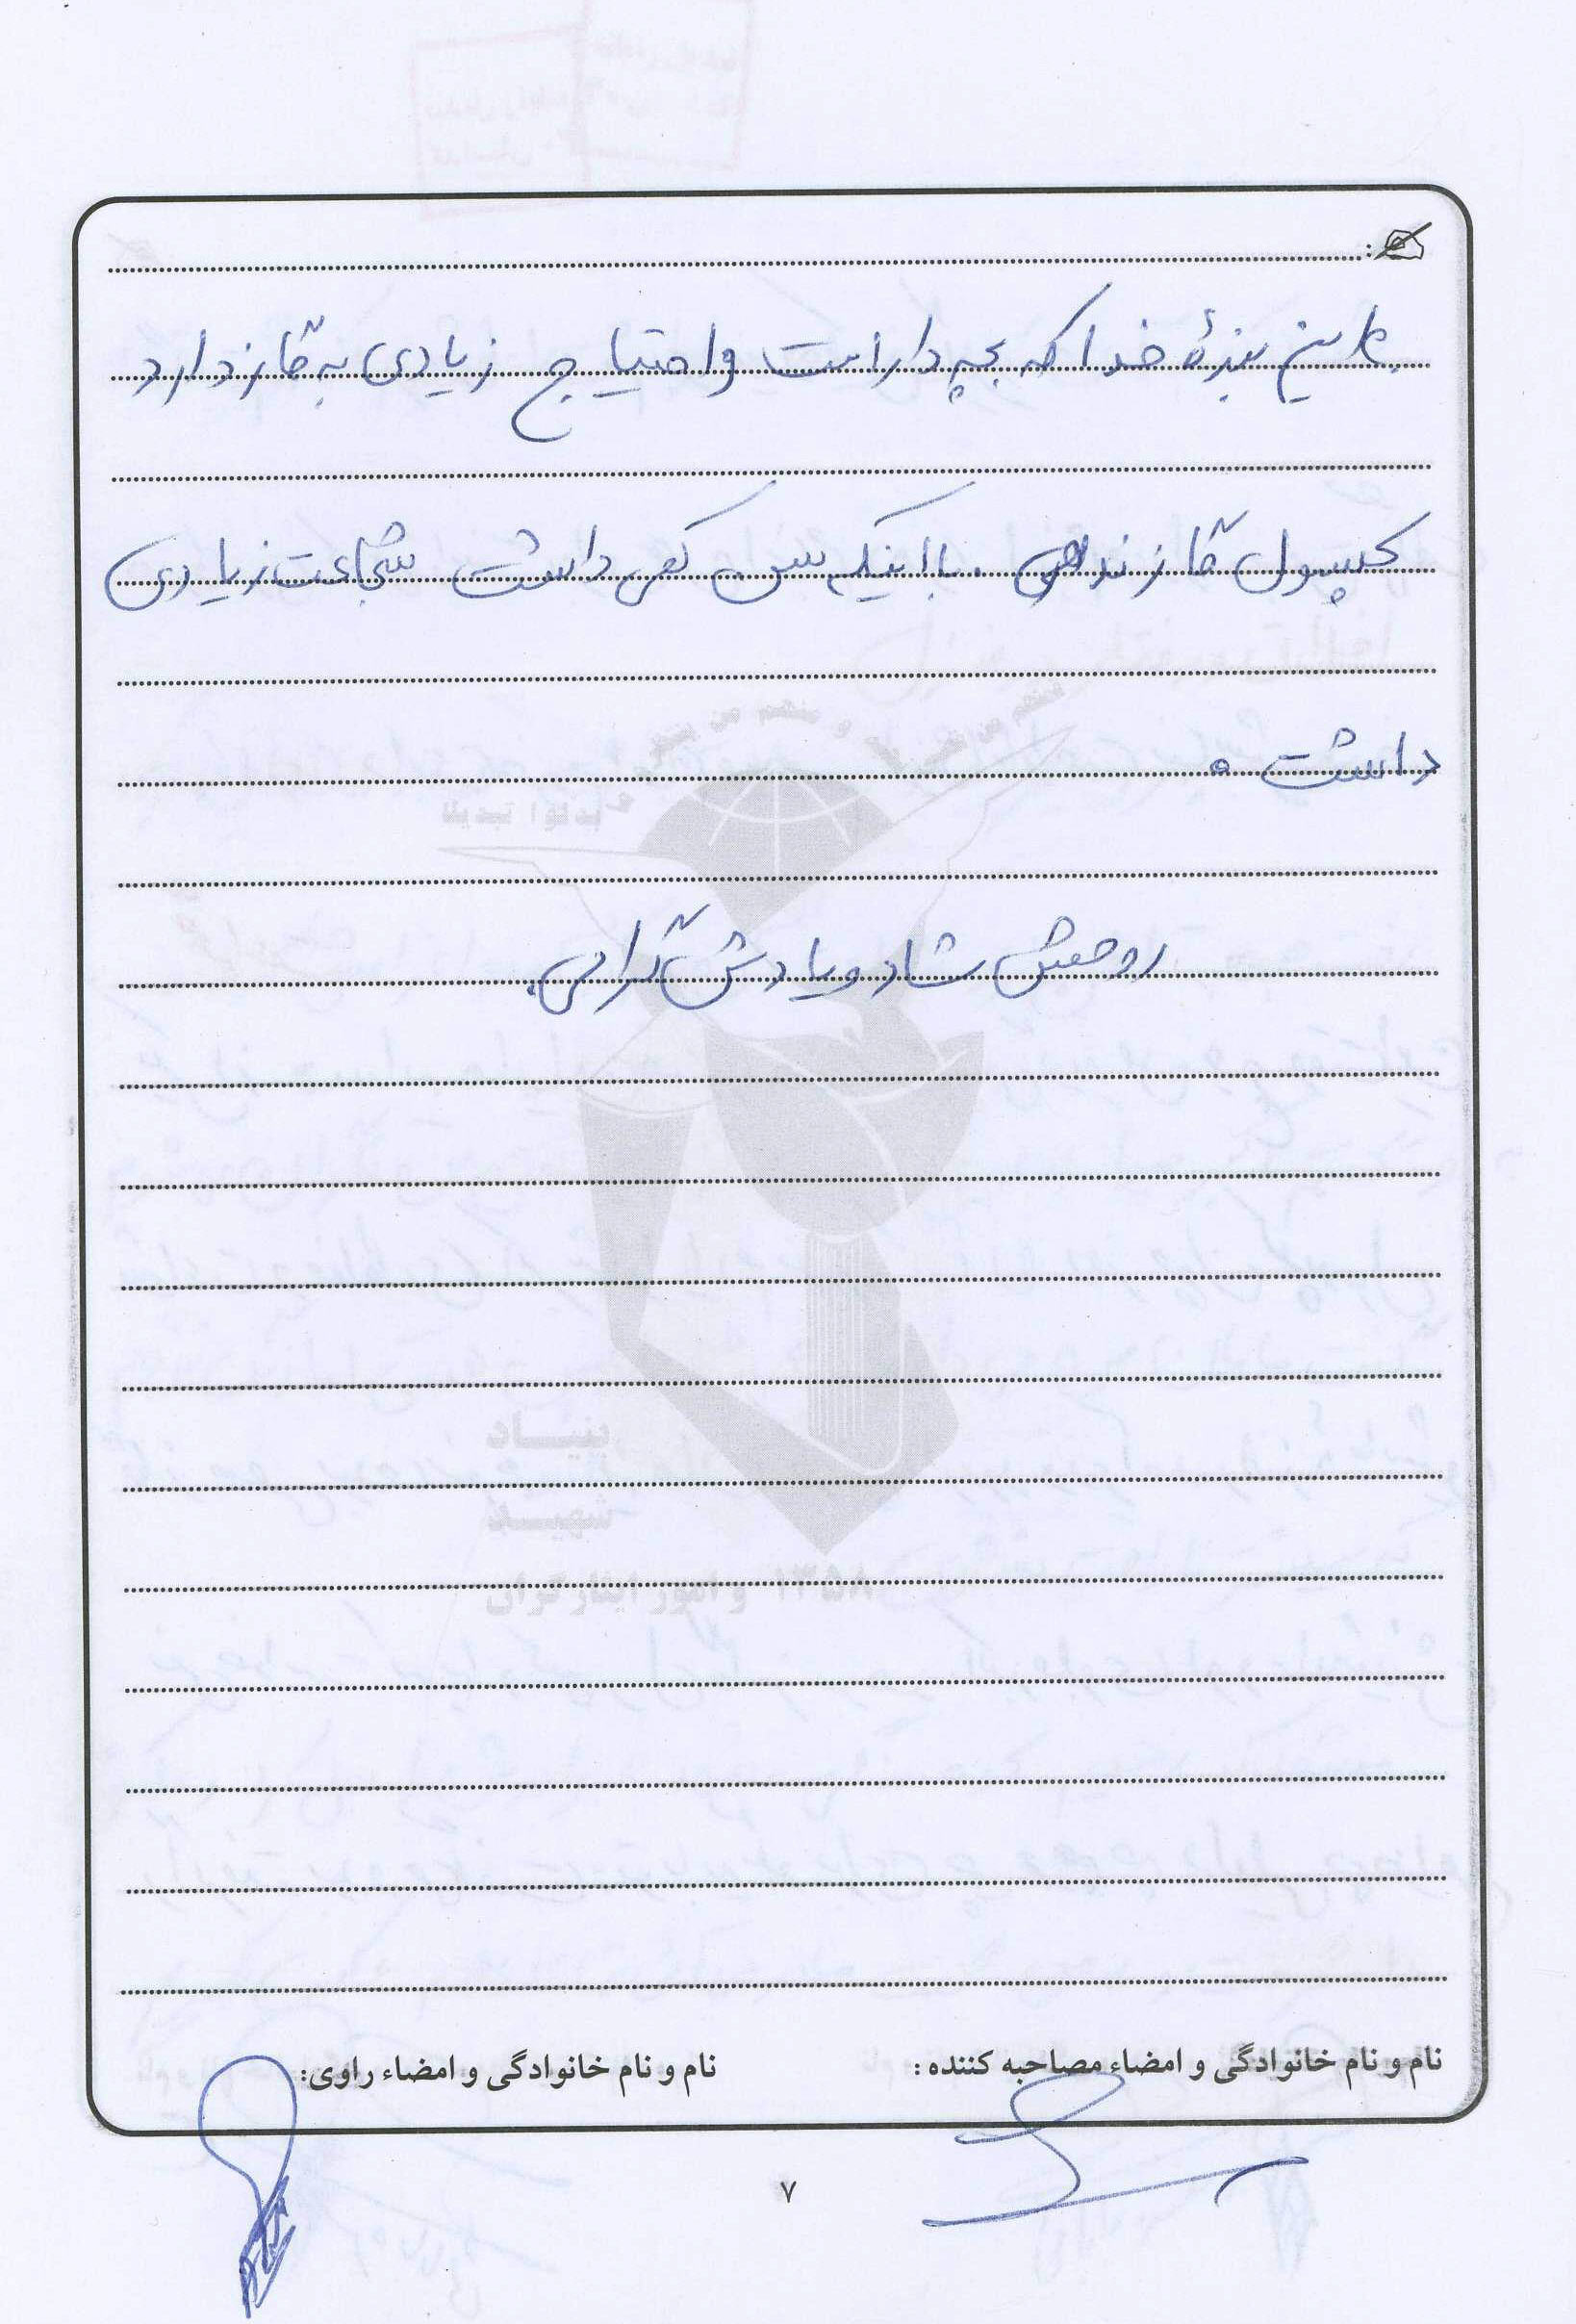 به این بندهٔ خدا که بچه دار است و احتیاج زیادی به گاز دارد
کپسول گاز ندهی . با اینکه سن کمی داشت شجاعت زیادی
داشت .
روحش شاد و یادش گرامی.
بنیاد
شهید
و امور ایثارگران ۱۳۵۸
نام و نام خانوادگی و امضاء مصاحبه کننده :
نام و نام خانوادگی و امضاء راوی:
۷